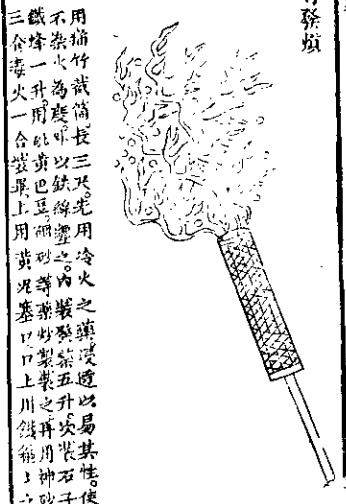 發熕
用猫竹截筒長三尺先用冷火之藥浸透以易其性。使
不染火為度外以鉄線纏之。內裝發藥五升次裝石子
鐵烽一升用砒黄巴豆硇砂等藥炒製裝之再用神砂
三合毒火一合裝畢上用黄泥塞口口上用鐵